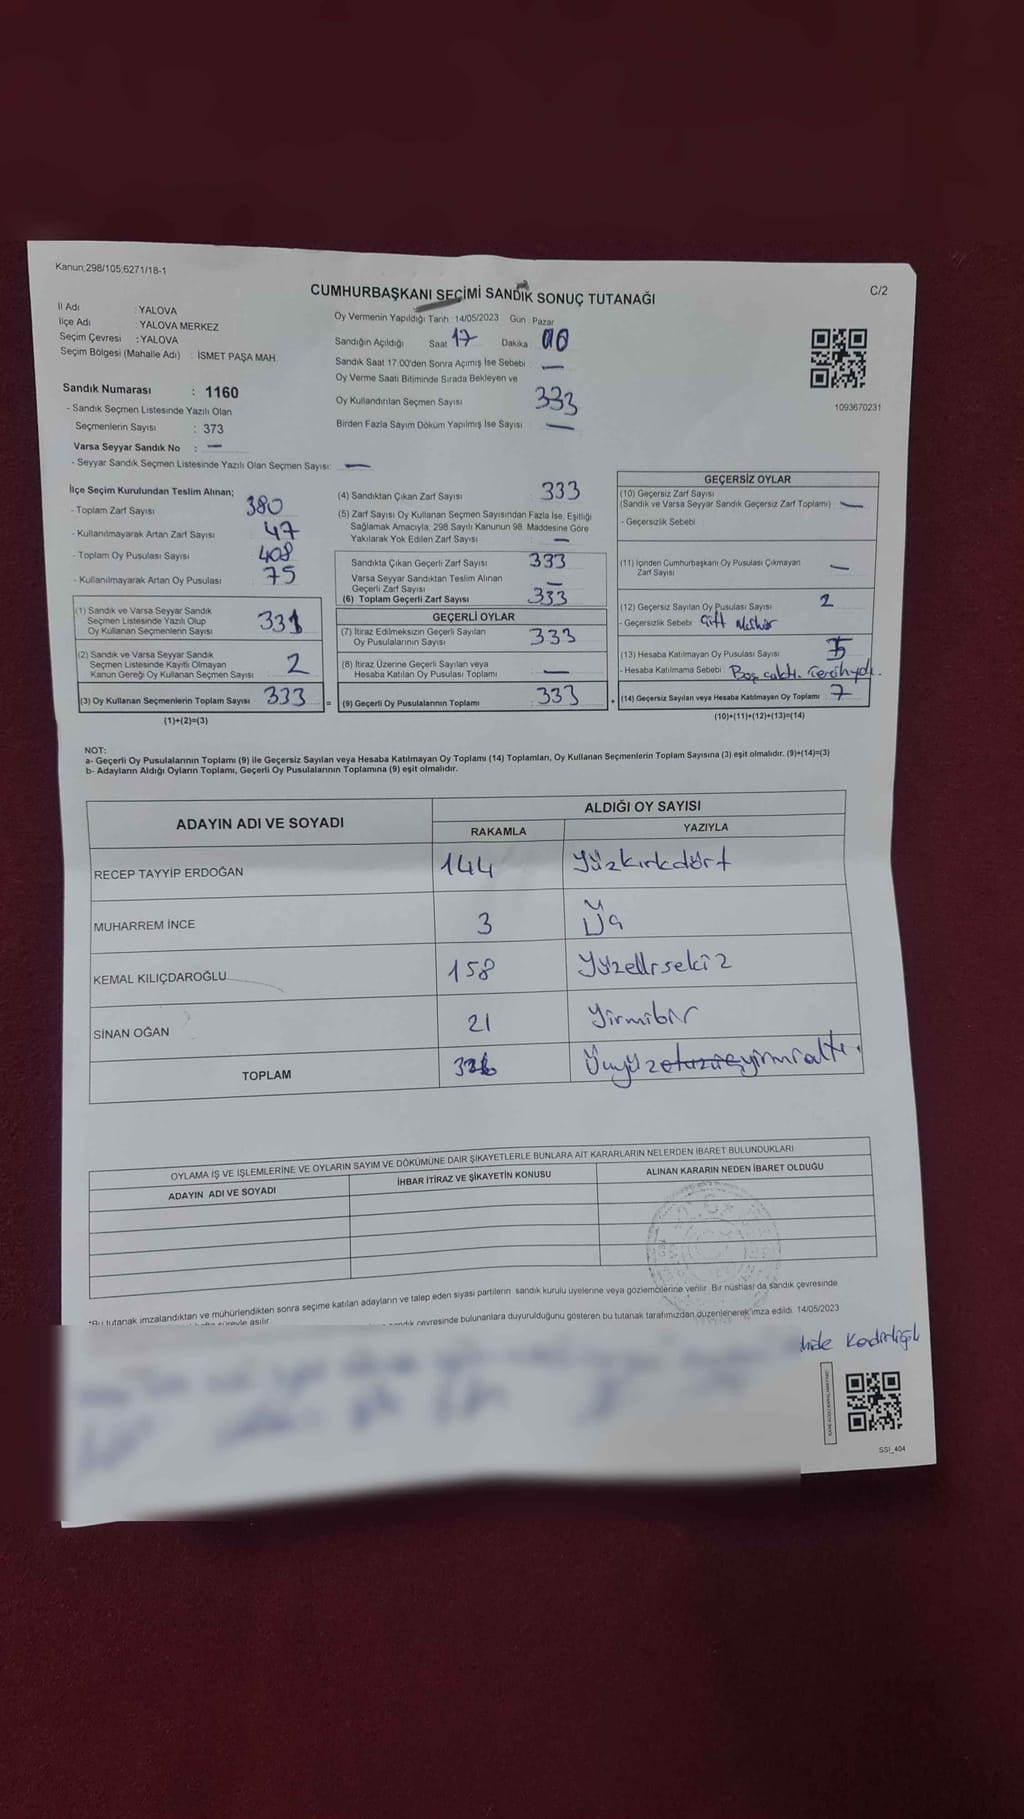 Kanun;298/105;6271/18-1
C/2
CUMHURBAŞKANI SEÇİMİ SANDIK SONUÇ TUTANAĞI
İl Adı : YALOVA
İlçe Adı : YALOVA MERKEZ
Seçim Çevresi : YALOVA
Seçim Bölgesi (Mahalle Adı) : İSMET PAŞA MAH.
Oy Vermenin Yapıldığı Tarih : 14/05/2023 Gün : Pazar
Sandığın Açıldığı Saat 17 Dakika 00
Sandık Saat 17.00'den Sonra Açımış İse Sebebi : —
Oy Verme Saati Bitiminde Sırada Bekleyen ve
Oy Kullandırılan Seçmen Sayısı 333
Birden Fazla Sayım Döküm Yapılmış İse Sayısı —
1093670231
Sandık Numarası : 1160
- Sandık Seçmen Listesinde Yazılı Olan
Seçmenlerin Sayısı : 373
Varsa Seyyar Sandık No : —
- Seyyar Sandık Seçmen Listesinde Yazılı Olan Seçmen Sayısı: —
İlçe Seçim Kurulundan Teslim Alınan;
- Toplam Zarf Sayısı 380
- Kullanılmayarak Artan Zarf Sayısı 47
- Toplam Oy Pusulası Sayısı 408
- Kullanılmayarak Artan Oy Pusulası 75
(1) Sandık ve Varsa Seyyar Sandık
Seçmen Listesinde Yazılı Olup
Oy Kullanan Seçmenlerin Sayısı 331
(2) Sandık ve Varsa Seyyar Sandık
Seçmen Listesinde Kayıtlı Olmayan
Kanun Gereği Oy Kullanan Seçmen Sayısı 2
(3) Oy Kullanan Seçmenlerin Toplam Sayısı 333 =
(1)+(2)=(3)
(4) Sandıktan Çıkan Zarf Sayısı 333
(5) Zarf Sayısı Oy Kullanan Seçmen Sayısından Fazla İse, Eşitliği
Sağlamak Amacıyla; 298 Sayılı Kanunun 98. Maddesine Göre
Yakılarak Yok Edilen Zarf Sayısı —
Sandıkta Çıkan Geçerli Zarf Sayısı 333
Varsa Seyyar Sandıktan Teslim Alınan
Geçerli Zarf Sayısı —
(6) Toplam Geçerli Zarf Sayısı 333
GEÇERLİ OYLAR
(7) İtiraz Edilmeksizin Geçerli Sayılan
Oy Pusulalarının Sayısı 333
(8) İtiraz Üzerine Geçerli Sayılan veya
Hesaba Katılan Oy Pusulası Toplamı —
(9) Geçerli Oy Pusulalarının Toplamı 333 +
GEÇERSİZ OYLAR
(10) Geçersiz Zarf Sayısı
(Sandık ve Varsa Seyyar Sandık Geçersiz Zarf Toplamı) : —
- Geçersizlik Sebebi
(11) İçinden Cumhurbaşkanı Oy Pusulası Çıkmayan
Zarf Sayısı —
(12) Geçersiz Sayılan Oy Pusulası Sayısı 2
- Geçersizlik Sebebi Çift Mühür
(13) Hesaba Katılmayan Oy Pusulası Sayısı 5
- Hesaba Katılmama Sebebi Boş çıktı.
(14) Geçersiz Sayılan veya Hesaba Katılmayan Oy Toplamı 7
(10)+(11)+(12)+(13)=(14)
NOT:
a- Geçerli Oy Pusulalarının Toplamı (9) ile Geçersiz Sayılan veya Hesaba Katılmayan Oy Toplamı (14) Toplamları, Oy Kullanan Seçmenlerin Toplam Sayısına (3) eşit olmalıdır. (9)+(14)=(3)
b- Adayların Aldığı Oyların Toplamı, Geçerli Oy Pusulalarının Toplamına (9) eşit olmalıdır.
ADAYIN ADI VE SOYADI ALDIĞI OY SAYISI
RAKAMLA YAZIYLA
RECEP TAYYİP ERDOĞAN 144 Yüzkırkdört
MUHARREM İNCE 3 Üç
KEMAL KILIÇDAROĞLU 158 Yüzellisekiz
SİNAN OĞAN 21 Yirmibir
TOPLAM 326 Üçyüz yirmialtı.
OYLAMA İŞ VE İŞLEMLERİNE VE OYLARIN SAYIM VE DÖKÜMÜNE DAİR ŞİKAYETLERLE BUNLARA AİT KARARLARIN NELERDEN İBARET BULUNDUKLARI
ADAYIN ADI VE SOYADI İHBAR İTİRAZ VE ŞİKAYETİN KONUSU ALINAN KARARIN NEDEN İBARET OLDUĞU
*Bu tutanak imzalandıktan ve mühürlendikten sonra seçime katılan adayların ve talep eden siyasi partilerin sandık kurulu üyelerine veya gözlemcilerine verilir. Bir nüshası da sandık çevresinde
asılır. sandık çevresinde bulunanlara duyurulduğunu gösteren bu tutanak tarafımızdan düzenlenerek imza edildi. 14/05/2023
SSI_404